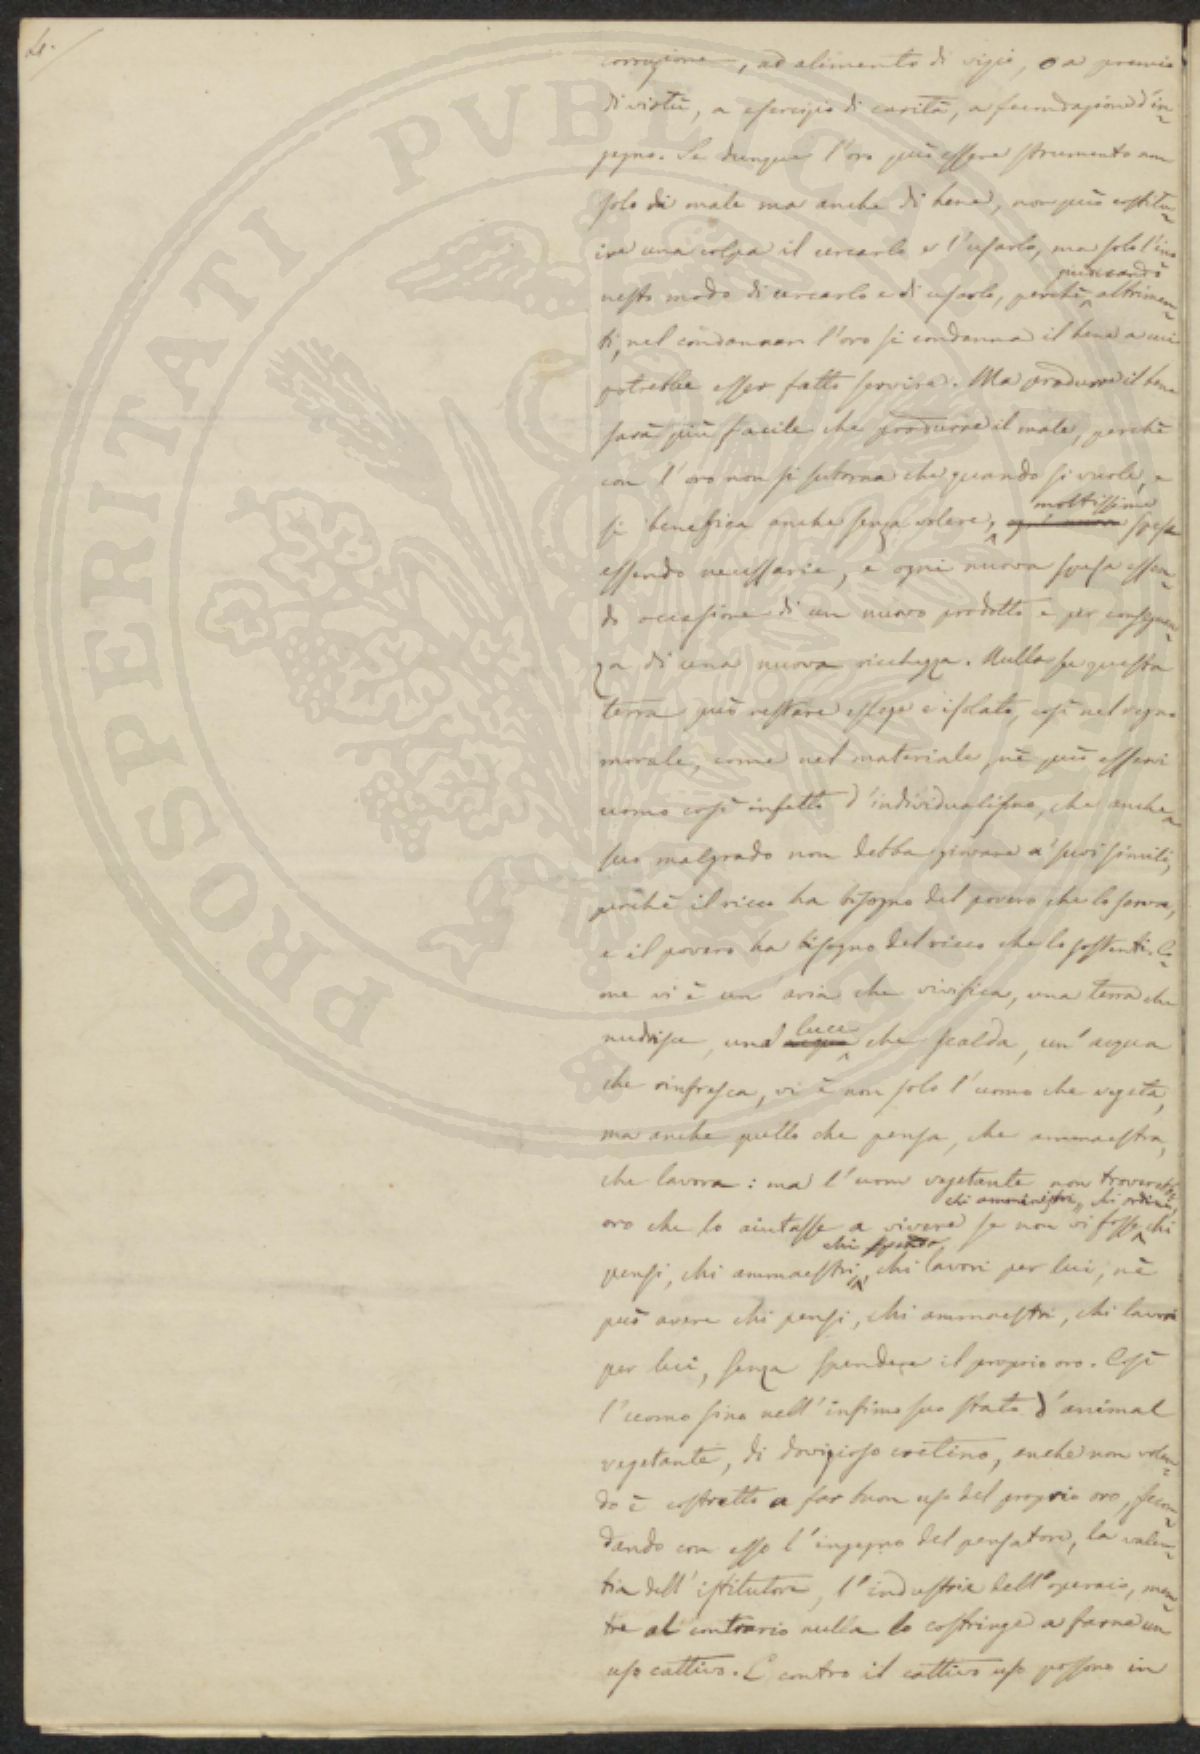 4.
corruzione, ad alimento di vizio, o a premio
di virtù, a esercizio di carità, a fecondazione d'in=
gegno. Se dunque l'oro può essere strumento non
solo di male ma anche di bene, non può costitu=
ire una colpa il cercarlo e l'usarlo, ma solo l'ino
nesto modo di cercarlo e di usarlo, perchè altrimen=
ti, nel condannare l'oro si condanna il bene a cui
potrebbe esser fatto servire. Ma produrre il bene
sarà più facile che produrre il male, perchè
con l'oro non si suborna che quando si vuole, e
moltissime
si benefica anche senza volere, spese
essendo necessarie, e ogni nuova spesa essen=
do occasione di un nuovo prodotto e per conseguen=
za di una nuova ricchezza. Nulla su questa
terra può restare isolato, così nel regno
morale, come nel materiale, nè può esservi
uomo così infetto d'individualismo, che anche a
suo malgrado non debba giovare a' suoi simili,
perchè il ricco ha bisogno del povero che lo serva,
e il povero ha bisogno del ricco che lo sostenti. Co=
me vi è un'aria che vivifica, una terra che
luce
nudrisce, una che scalda, un'acqua
che rinfresca, vi è non solo l'uomo che vegeta,
ma anche quello che pensa, che ammaestra,
che lavora: ma l'uom vegetante non troverebbe
chi amministri, chi ordini,
oro che lo aiutasse a vivere se non vi fosse chi
pensi, chi ammaestri, chi lavori per lui, nè
può avere chi pensi, chi ammaestri, chi lavori
per lui, senza spendere il proprio oro. Così
l'uomo sino nell'infimo suo stato d'animal
vegetante, di dovizioso cretino, anche non volen=
do è costretto a far buon uso del proprio oro, fecon=
dando con esso l'ingegno del pensatore, la valen=
tia dell'istitutore, l'industria dell'operaio, men=
tre al contrario nulla lo costringe a farne un
uso cattivo. E contro il cattivo uso possono in